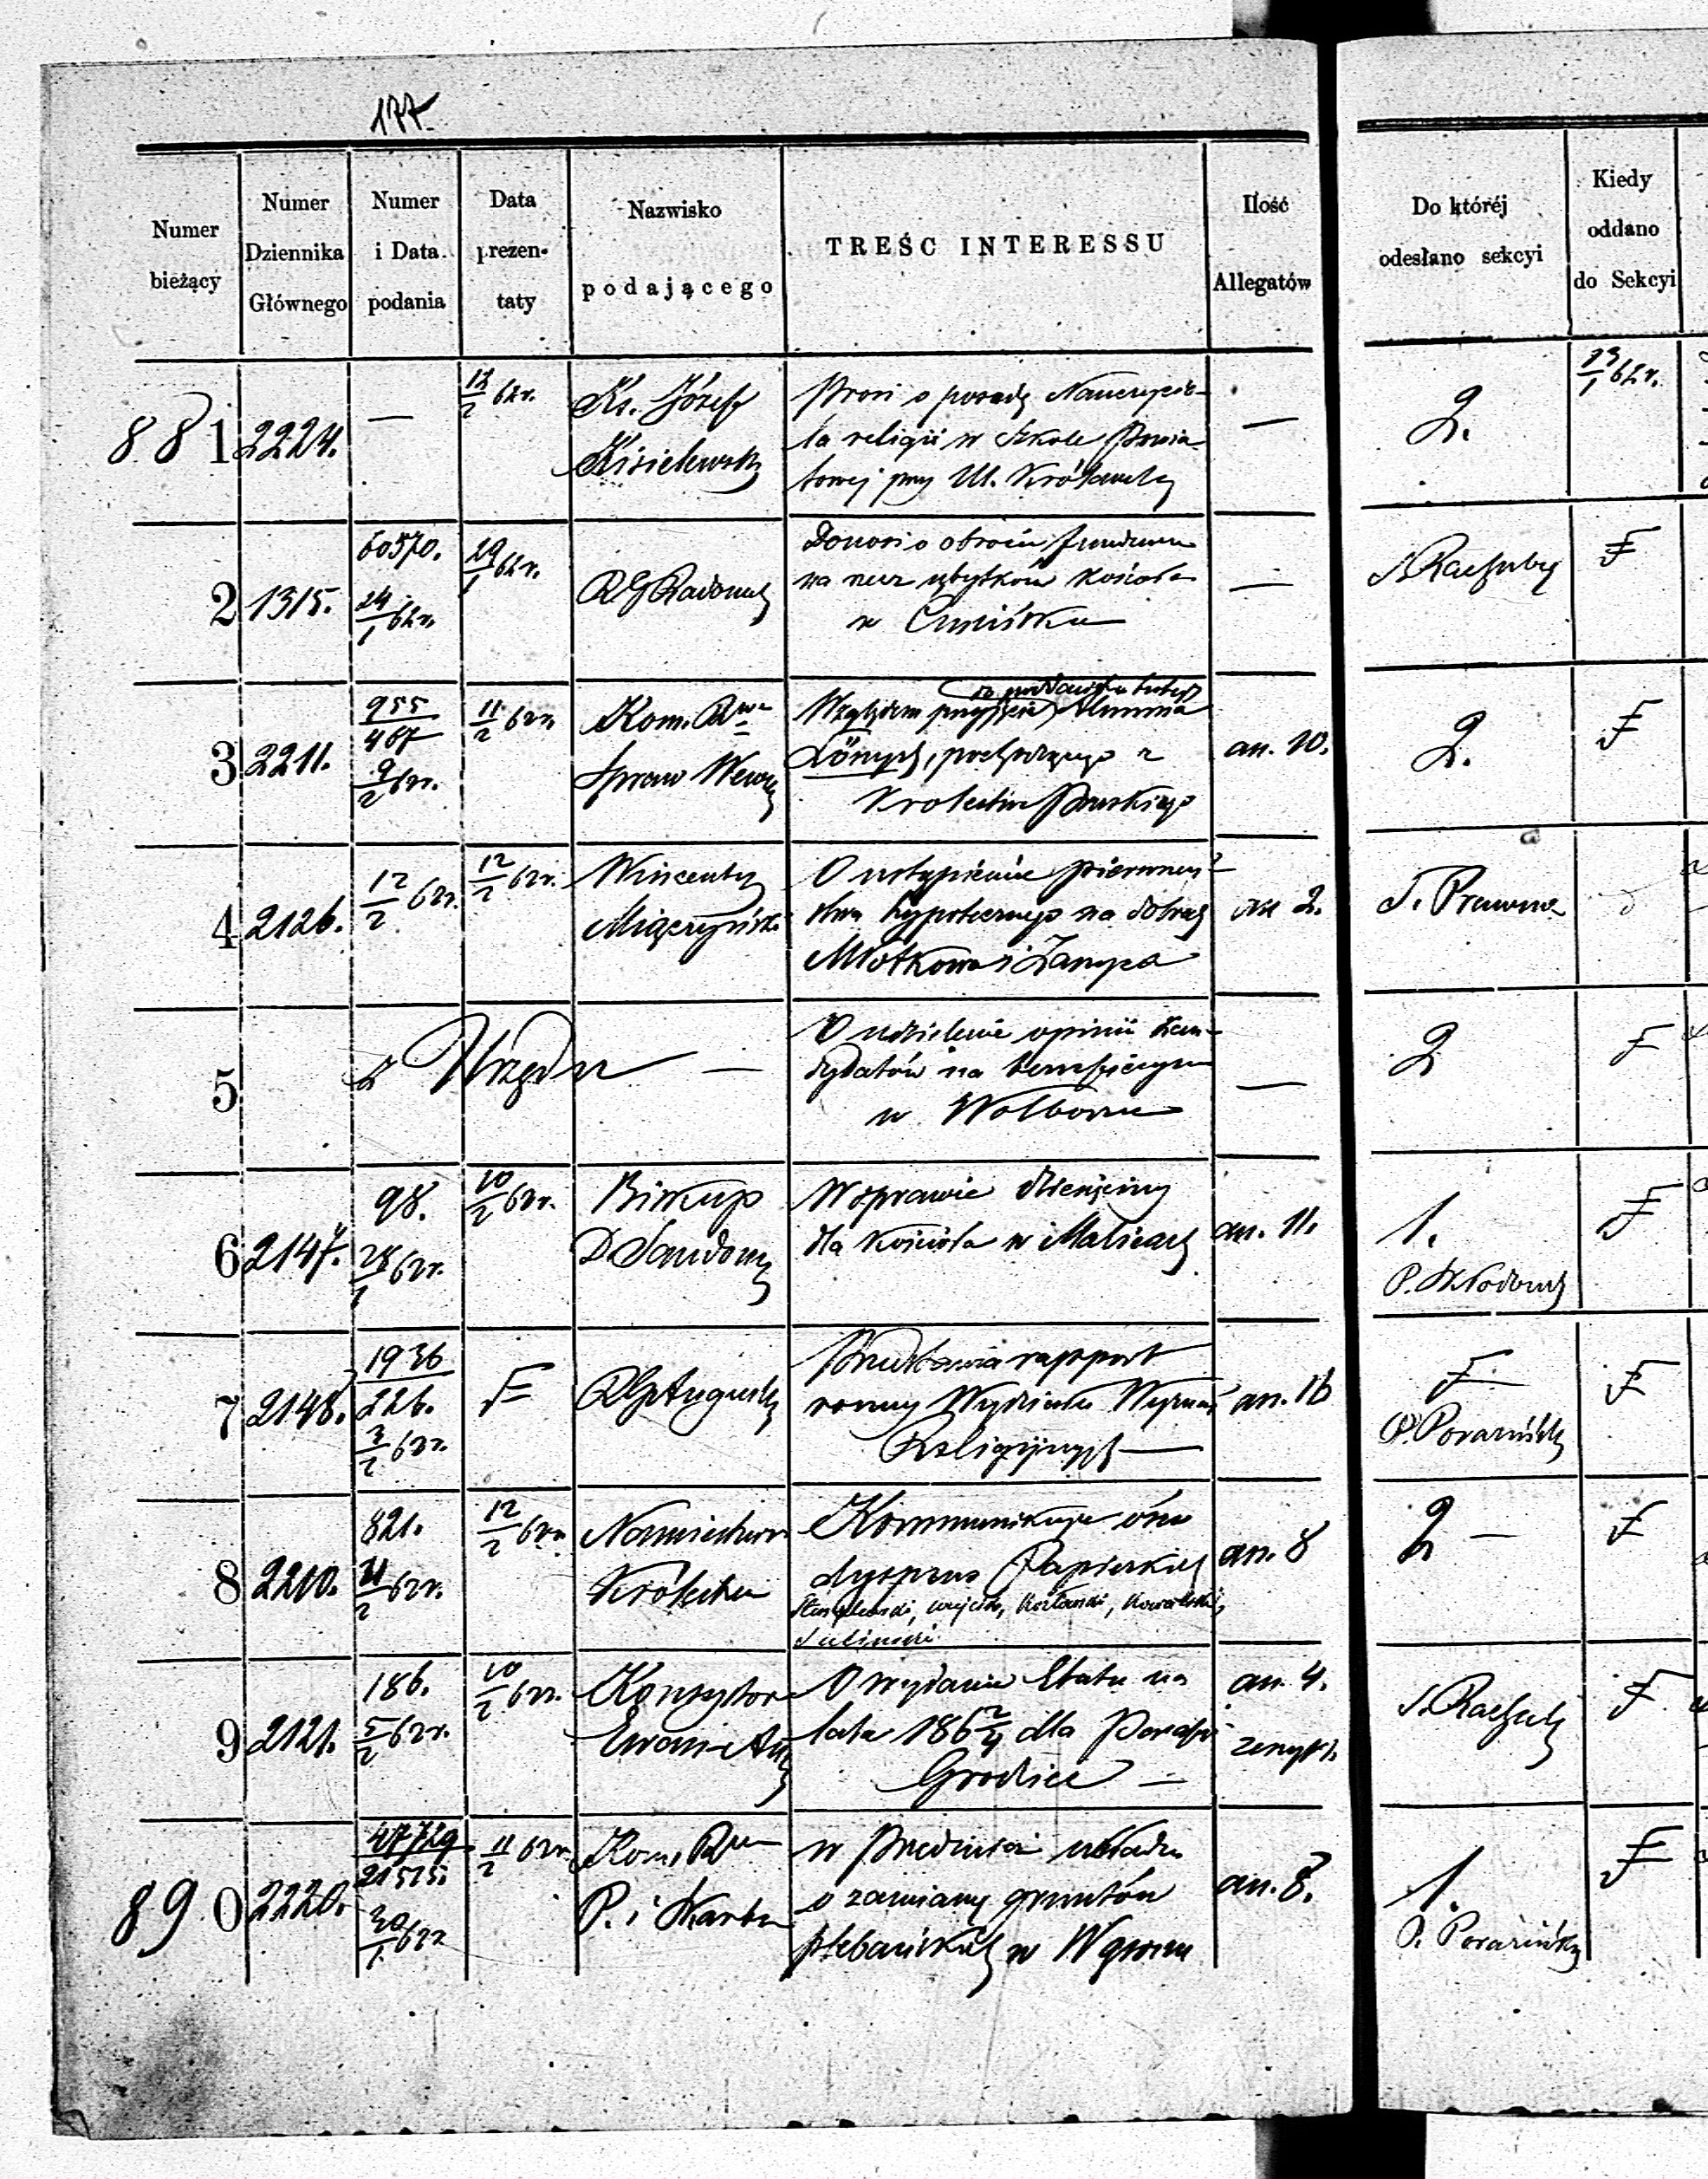 177.
Numer bieżący
Numer Dziennika Głównego
Numer i Data podania
Data prezentaty
Nazwisko podającego
TREŚC INTERESSU
Ilość Allegatów
Do któréj odesłano sekcyi
Kiedy oddano do Sekcyi
881 2224. — 12/2 62r.
Ks. Józef
Kisielewski
Prosi o posadę Nauczycie-
la religii w Szkole Powia-
towej przy Ul. Królewskiej
—
2.
13/1 62r.
2 1315. 60570. 24/1 62r. 29/1 62r.
R G Radomsk
Donosi o obrocie funduszu
na rzecz ubytków Kościoła
w
—
S. Rachuby
F
3 2211. 955/467 9/2 62r. 11/2 62r.
Kom. Rwa
Spraw Wewn
Względem przyjęcia Alumna
pochodzącego z
Krolestwa Pruskiego
an. 10.
2.
F
4 2126. 12/2 62r. 12/2 62r.
Wincenty
Miączyński
O ustąpienie pierwszeń-
stwa hypotecznego na dobrach
Młotkowo i
an 2.
S. Prawna
5 z Urzędu —
O udzielenie opinii kan-
dydatów na beneficjum
w Wolborzu
—
2
F
6 2147. 98. 28/1 62r. 10/2 62r.
Biskup
D. Sandom
W sprawie dziesięciny
dla Kościoła w Malicach
an. 11.
1.
P.
F
7 2148. 1936/226. 3/2 62r. F
RG Augustk
Przedstawia rapport
roczny Wydziału Wyznań
Religijnych —
an. 16
F
P. Poraziński
F
8 2210. 821. 11/2 62r. 12/2 62r.
Namiestnik
Królestwa
Kommunikuje ośm
dyspens Papieskich
Kowalski,
Suliński
an. 8
2 —
F
9 2121. 186. 5/2 62r. 10/2 62r.
Konsystorz
Ewan-Au
O wydanie Etatu na
lata 186 2/4 dla Parafii
Grodziec —
an. 4.
zeszyt 1.
S. Rachub
F
890 2220. 47729/21515. 30/1 62r 11/2 62r.
Kom. Rwa
P. i Skarbu
w Przedmiocie układu
o zamianę gruntów
plebańskich w
an. 8.
1.
P. Poraziński
F